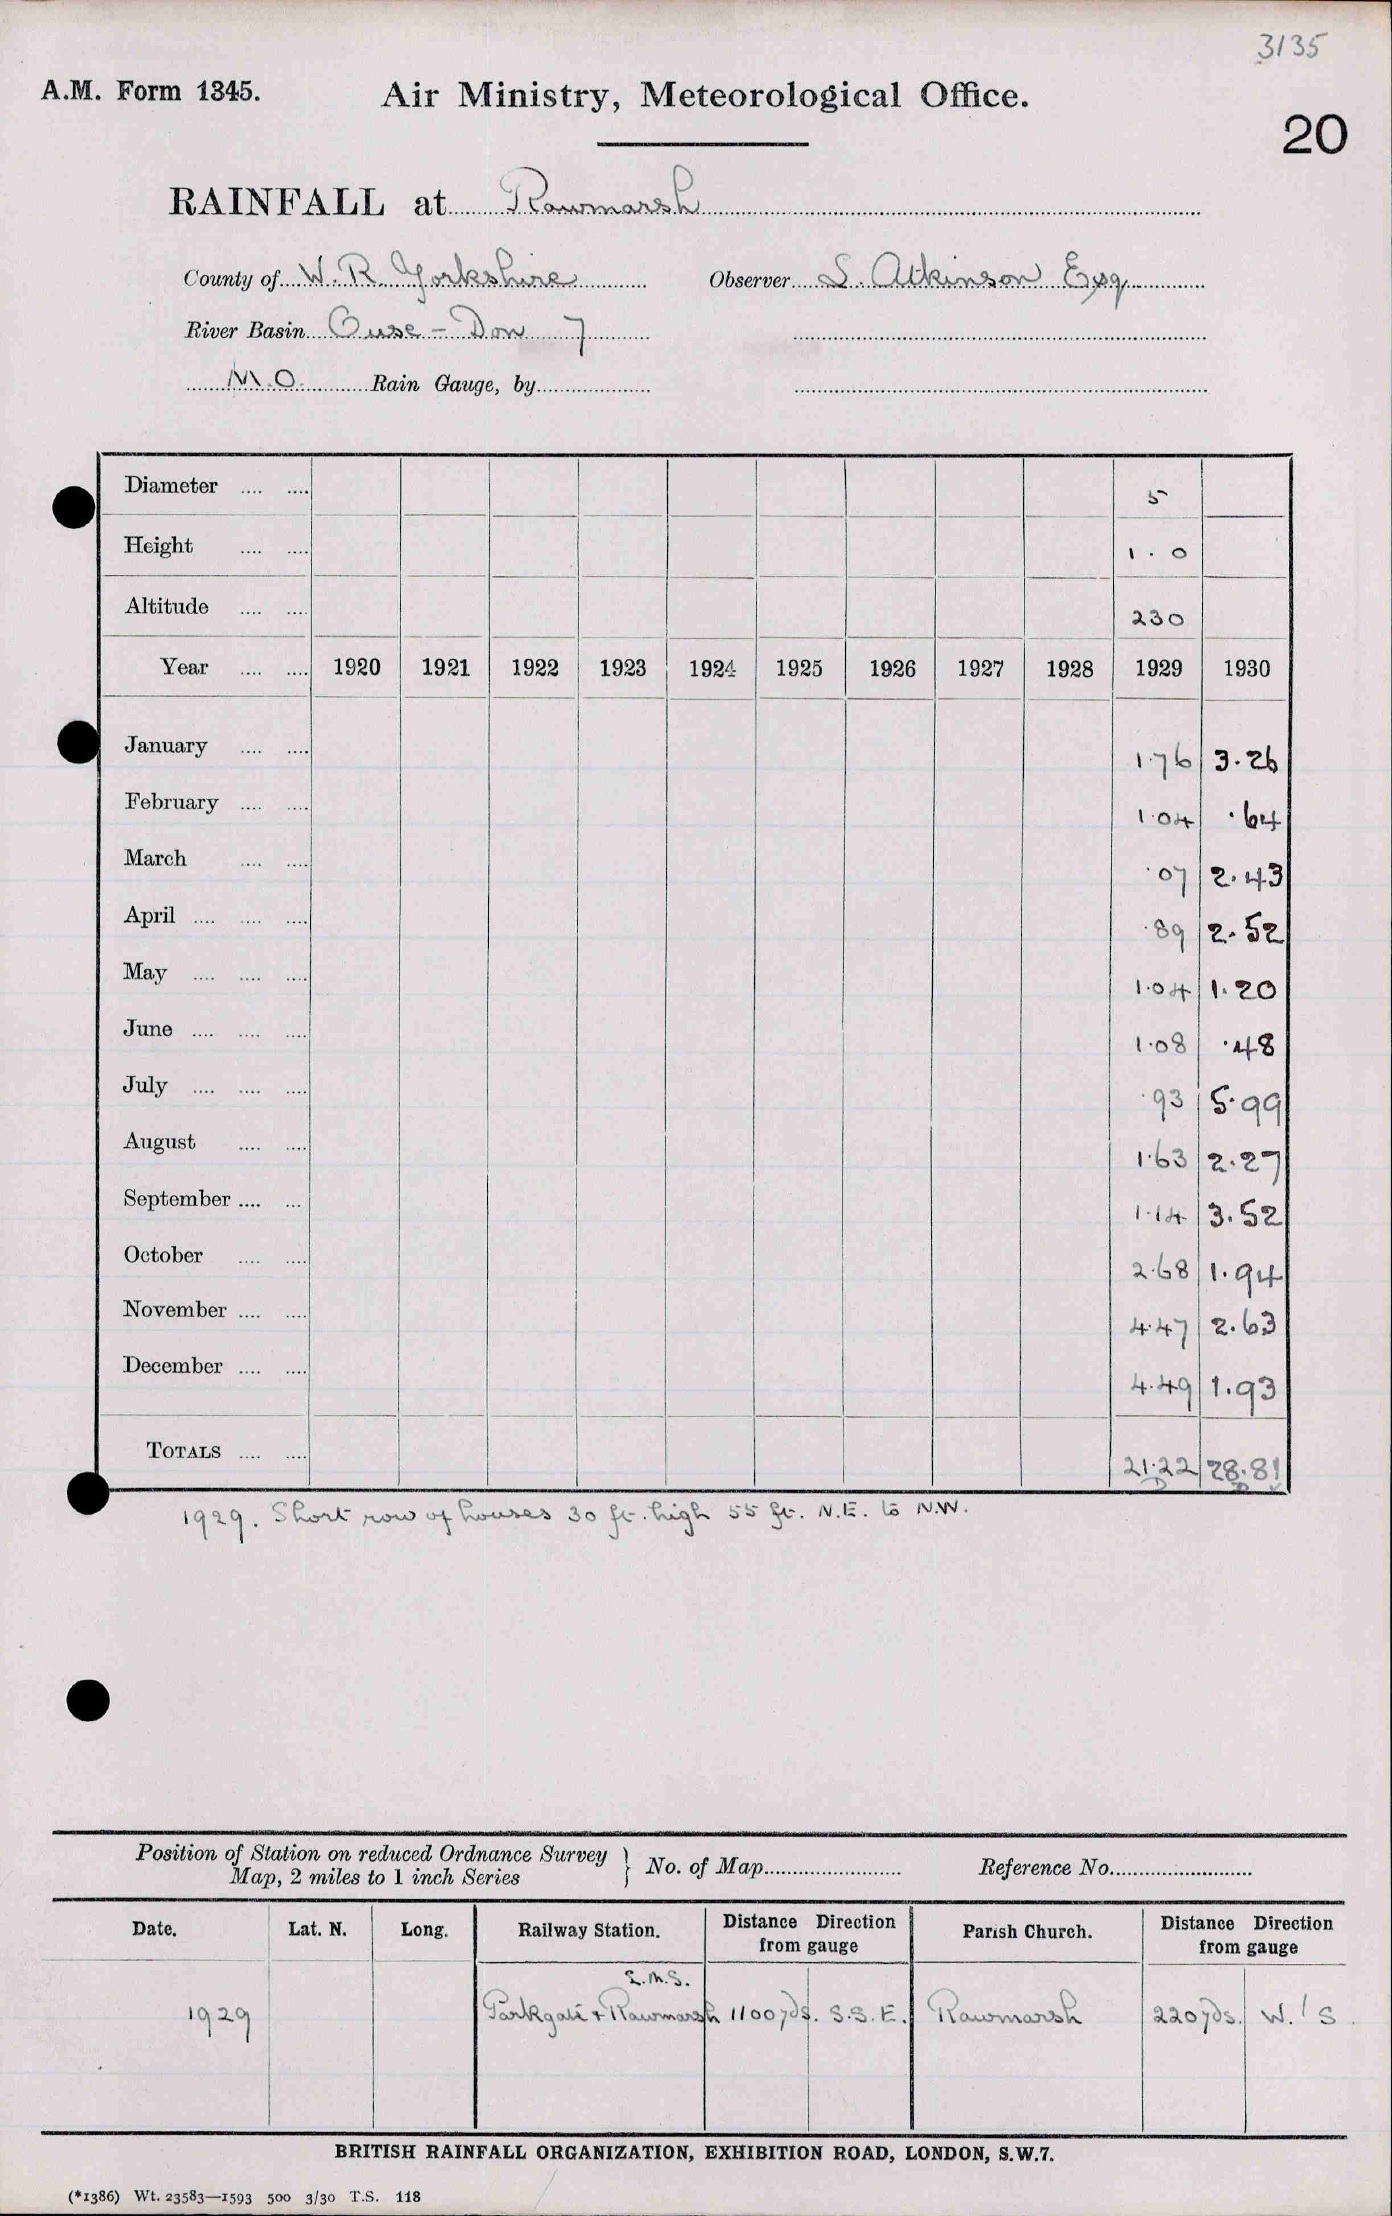 3135
A.M. Form 1345.
Air Ministry, Meteorological Office.
20
RAINFALL at Rawmarsh
County of W. R. Yorkshire Observer S. Atkinson Esq.
River Basin Ouse - Don 7
M.O. Rain Gauge, by
Diameter .... .... 5
Height .... .... 1 . 0
Altitude .... .... 230
Year .... .... 1920 1921 1922 1923 1924 1925 1926 1927 1928 1929 1930
January .... .... 1.76 3.26
February .... .... 1.04 .64
March .... .... .07 2.43
April .... .... .... .89 2.52
May .... .... .... 1.04 1.20
June .... .... .... 1.08 .48
July .... .... .... .93 5.99
August .... .... 1.63 2.27
September .... ... 1.14 3.52
October .... .... 2.68 1.94
November .... .... 4.47 2.63
December .... .... 4.49 1.93
TOTALS .... .... 21.22 28.81
1929. Short row of houses 30 ft. high 55 ft. N.E. to N.W.
Position of Station on reduced Ordnance Survey
Map, 2 miles to 1 inch Series } No. of Map Reference No.
Date. Lat. N. Long. Railway Station. Distance Direction from gauge Parish Church. Distance Direction from gauge
L.M.S.
1929 Parkgate + Rawmarsh 1100 yds. S.S.E. Rawmarsh 220 yds. W. / S
BRITISH RAINFALL ORGANIZATION, EXHIBITION ROAD, LONDON, S.W.7.
(*1386) Wt. 23583—1593 500 3/30 T.S. 118